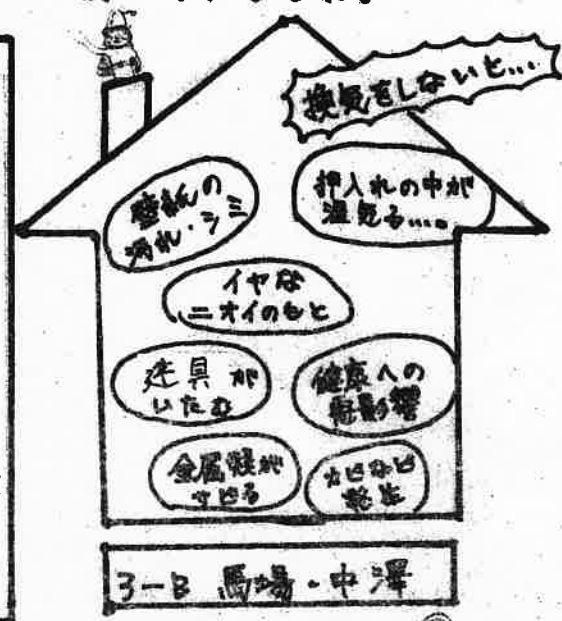 換気をしないと…
壁紙の
汚れ・シミ
押入れの中が
湿気る….
イヤな
ニオイのもと
建具が
いたむ
健康への
悪影響
金属類が
サビる
カビなど
発生
3-B 馬場・中澤